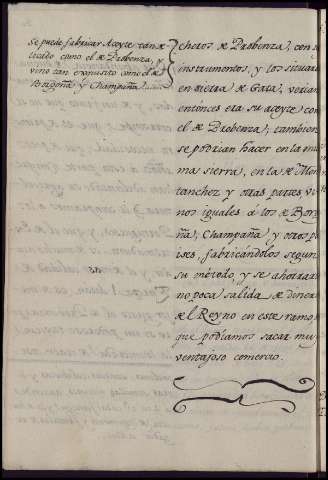 Se puede fabricar Aceyte tan de-
licado como el de Probenza, y
vino tan exquisito como el de
Borgoña y Champaña
cheros de Probenza, con s
instrumentos, y los situara
en sierra de Gata; verian
entónces era su aceyte com
el de Probenza; tambien
se podrian hacer en la mis
ma sierra, en la de Mon
tanchez y otras partes vi-
nos iguales á los de Borg
ña, Champaña, y otros pa
ises, fabricándolos segun
su método, y se ahorrara
no poca salida de dinero
del Reyno en este ramo,
que podíamos sacar muy
ventajoso comercio.